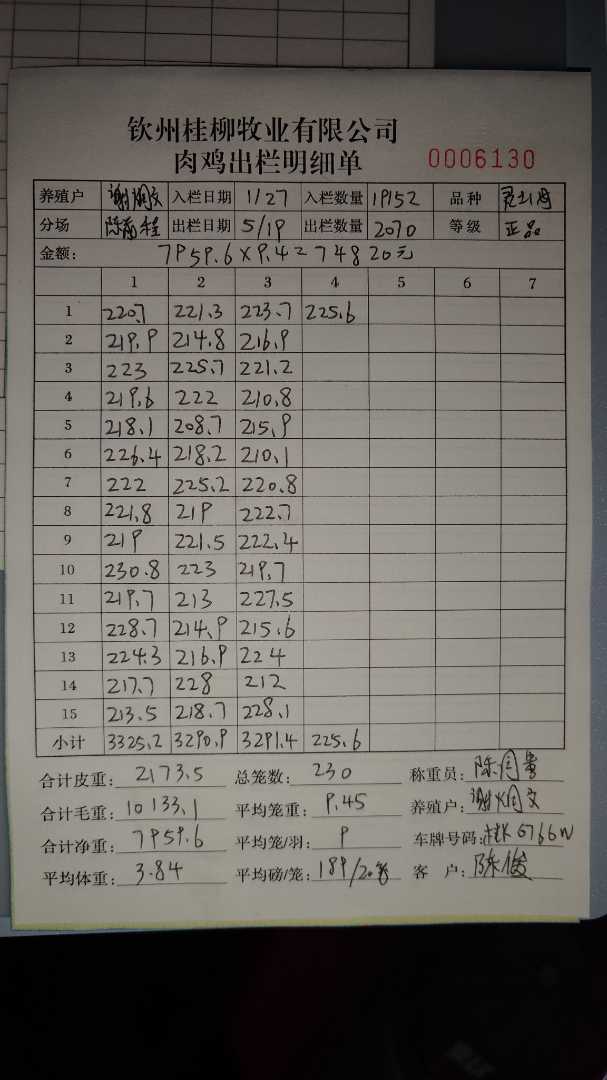 钦州桂柳牧业有限公司
肉鸡出栏明细单 0006130
养殖户 入栏日期 1/27 入栏数量 19152 品种
分场 出栏日期 5/19 出栏数量 2070 等级 正品
金额: 7959.6×9.4=74820元
1 2 3 4 5 6 7
1 220.7 221.3 223.7 225.6
2 219.9 214.8 216.9
3 223 225.7 221.2
4 219.6 222 210.8
5 218.1 208.7 215.9
6 226.4 218.2 210.1
7 222 225.2 220.8
8 221.8 219 222.7
9 219 221.5 222.4
10 230.8 223 219.7
11 219.7 213 227.5
12 228.7 214.9 215.6
13 224.3 216.9 224
14 217.7 228 212
15 213.5 218.7 228.1
小计 3325.2 3290.9 3291.4 225.6
合计皮重: 2173.5 总笼数: 230 称重员:
合计毛重: 10133.1 平均笼重: 9.45 养殖户:
合计净重: 7959.6 平均笼/羽: 9 车牌号码:
平均体重: 3.84 平均磅/笼: 189/20 客户: 陈俊